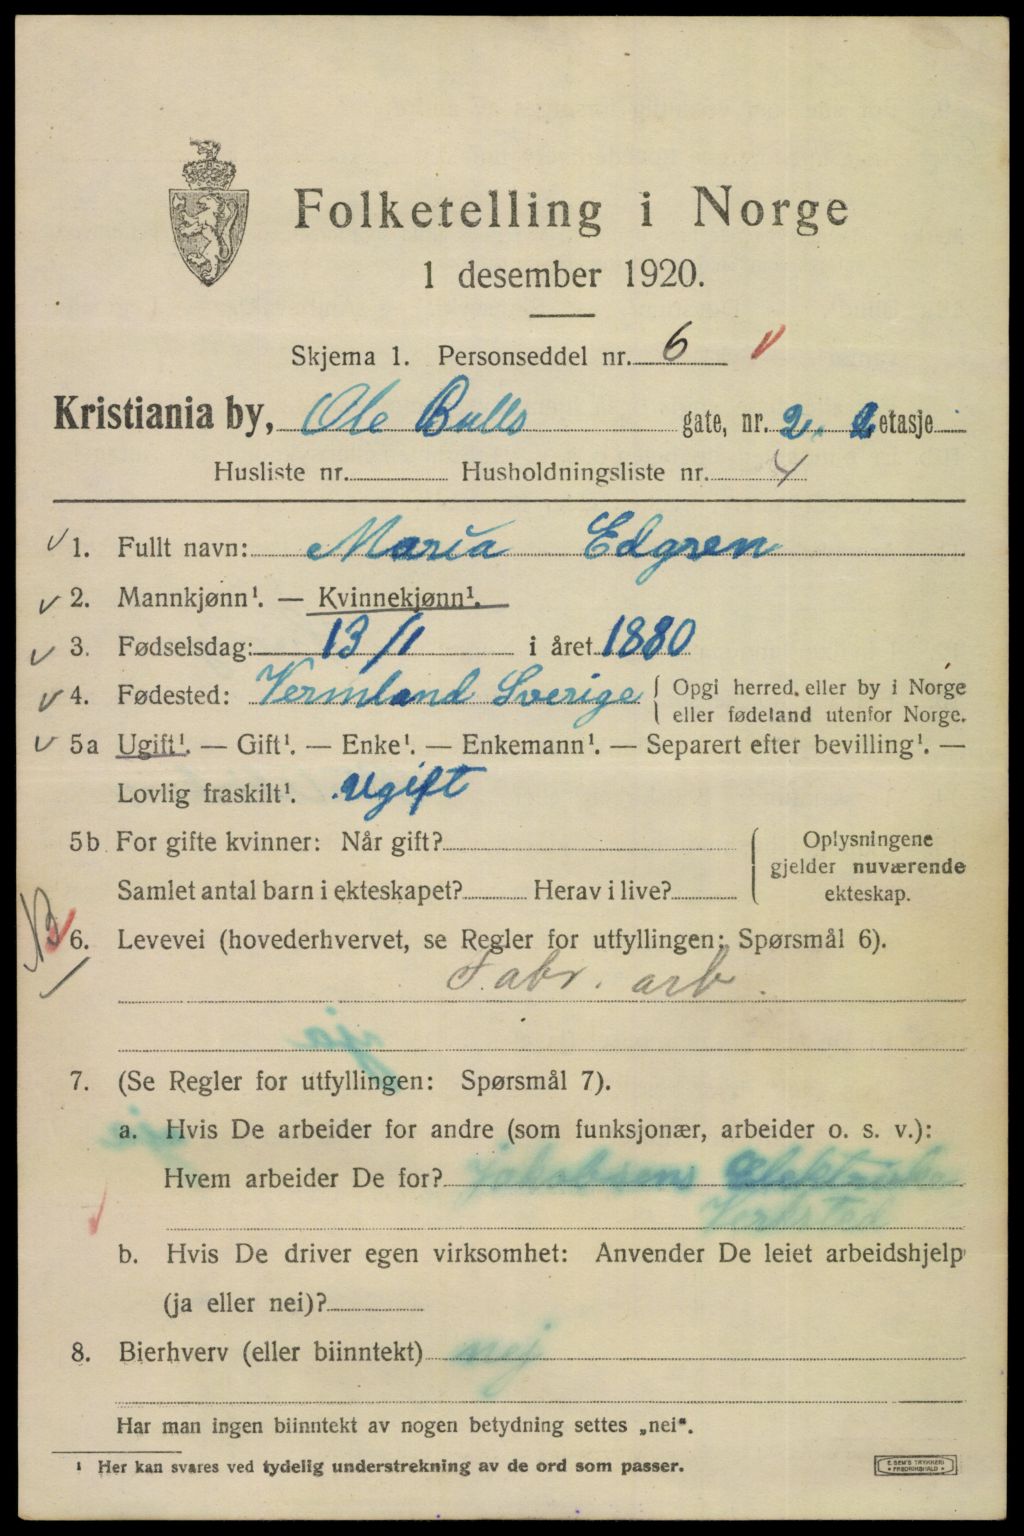 Folketelling i Norge
1 desember 1920.
Skjema 1. Personseddel nr. 6
Kristiania by, Ole Bulls gate, nr. 2. 2 etasje
Husliste nr. Husholdningsliste nr. 4
1. Fullt navn: Maria Edgren
2. Mannkjønn¹. — Kvinnekjønn¹.
3. Fødselsdag: 13/1 i året 1880
4. Fødested: Vermland Sverige { Opgi herred, eller by i Norge
eller fødeland utenfor Norge.
5a Ugift¹. — Gift¹. — Enke¹. — Enkemann¹. — Separert efter bevilling¹. —
Lovlig fraskilt¹. Ugift
5b For gifte kvinner: Når gift? { Oplysningene
gjelder nuværende
Samlet antal barn i ekteskapet? Herav i live?
ekteskap.
6. Levevei (hovederhvervet, se Regler for utfyllingen: Spørsmål 6).
Fabr. arb.
7. (Se Regler for utfyllingen: Spørsmål 7).
a. Hvis De arbeider for andre (som funksjonær, arbeider o. s. v.):
Hvem arbeider De for? Jakobsens Elektriske
Verksted
b. Hvis De driver egen virksomhet: Anvender De leiet arbeidshjelp
(ja eller nei)?
8. Bierhverv (eller biinntekt) nej
Har man ingen biinntekt av nogen betydning settes „nei“.
¹ Her kan svares ved tydelig understrekning av de ord som passer.
E. SEM'S TRYKKERI
FREDRIKSHALD